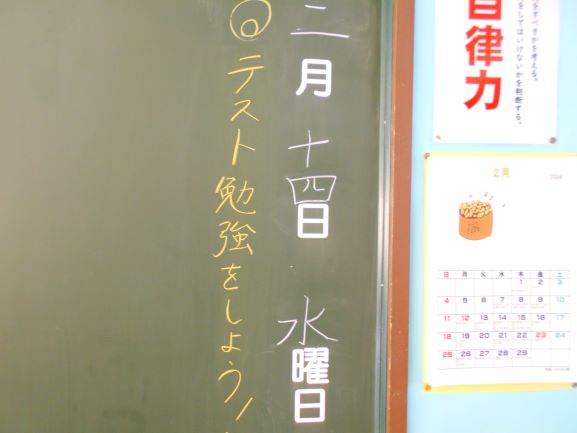 二月十四日 水曜日
◎テスト勉強をしよう！
自律力
をすべきかを考える。
をしてはいけないかを判断する。
2月 2024
福
日 月 火 水 木 金 土
1 2 3
4 5 6 7 8 9 10
11 12 13 14 15 16 17
18 19 20 21 22 23 24
25 26 27 28 29